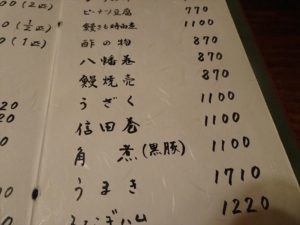 00(2匹)
0(½匹)
00(1匹)
ピーナツ豆腐 770
鰻きも時雨煮 1100
酢の物 870
八幡巻 870
鰻焼売 870
うざく 1100
信田巻 1100
角煮(黒豚) 1100
うまき 1710
1220